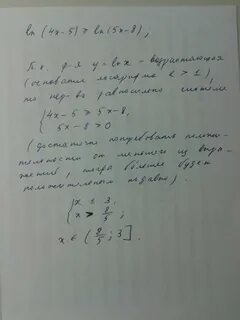 ln (4x-5) ⩾ ln (5x-8);
Т.к. ф-я y=lnx - возрастающая
(основание логарифма e > 1),
то нер-во равносильно системе
{4x-5 ⩾ 5x-8,
5x-8 > 0
(достаточно потребовать положи-
тельности от меньшего из выра-
жений, тогда большее будет
положительным подавно).
{x ≤ 3,
x > 8/5;
x ∈ (8/5; 3].